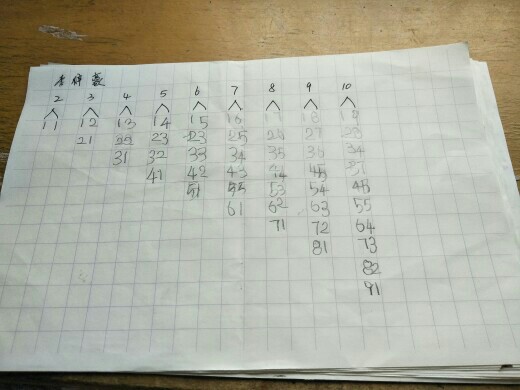 2 3 4 5 6 7 8 9 10
11 12 13 14 15 16 17 18 19
21 22 23 23 25 26 27
31 32 33 34 35 36 34
41 42 43 45
51 53 54 45
61 62 63 55
71 72 64
81 73
82
91